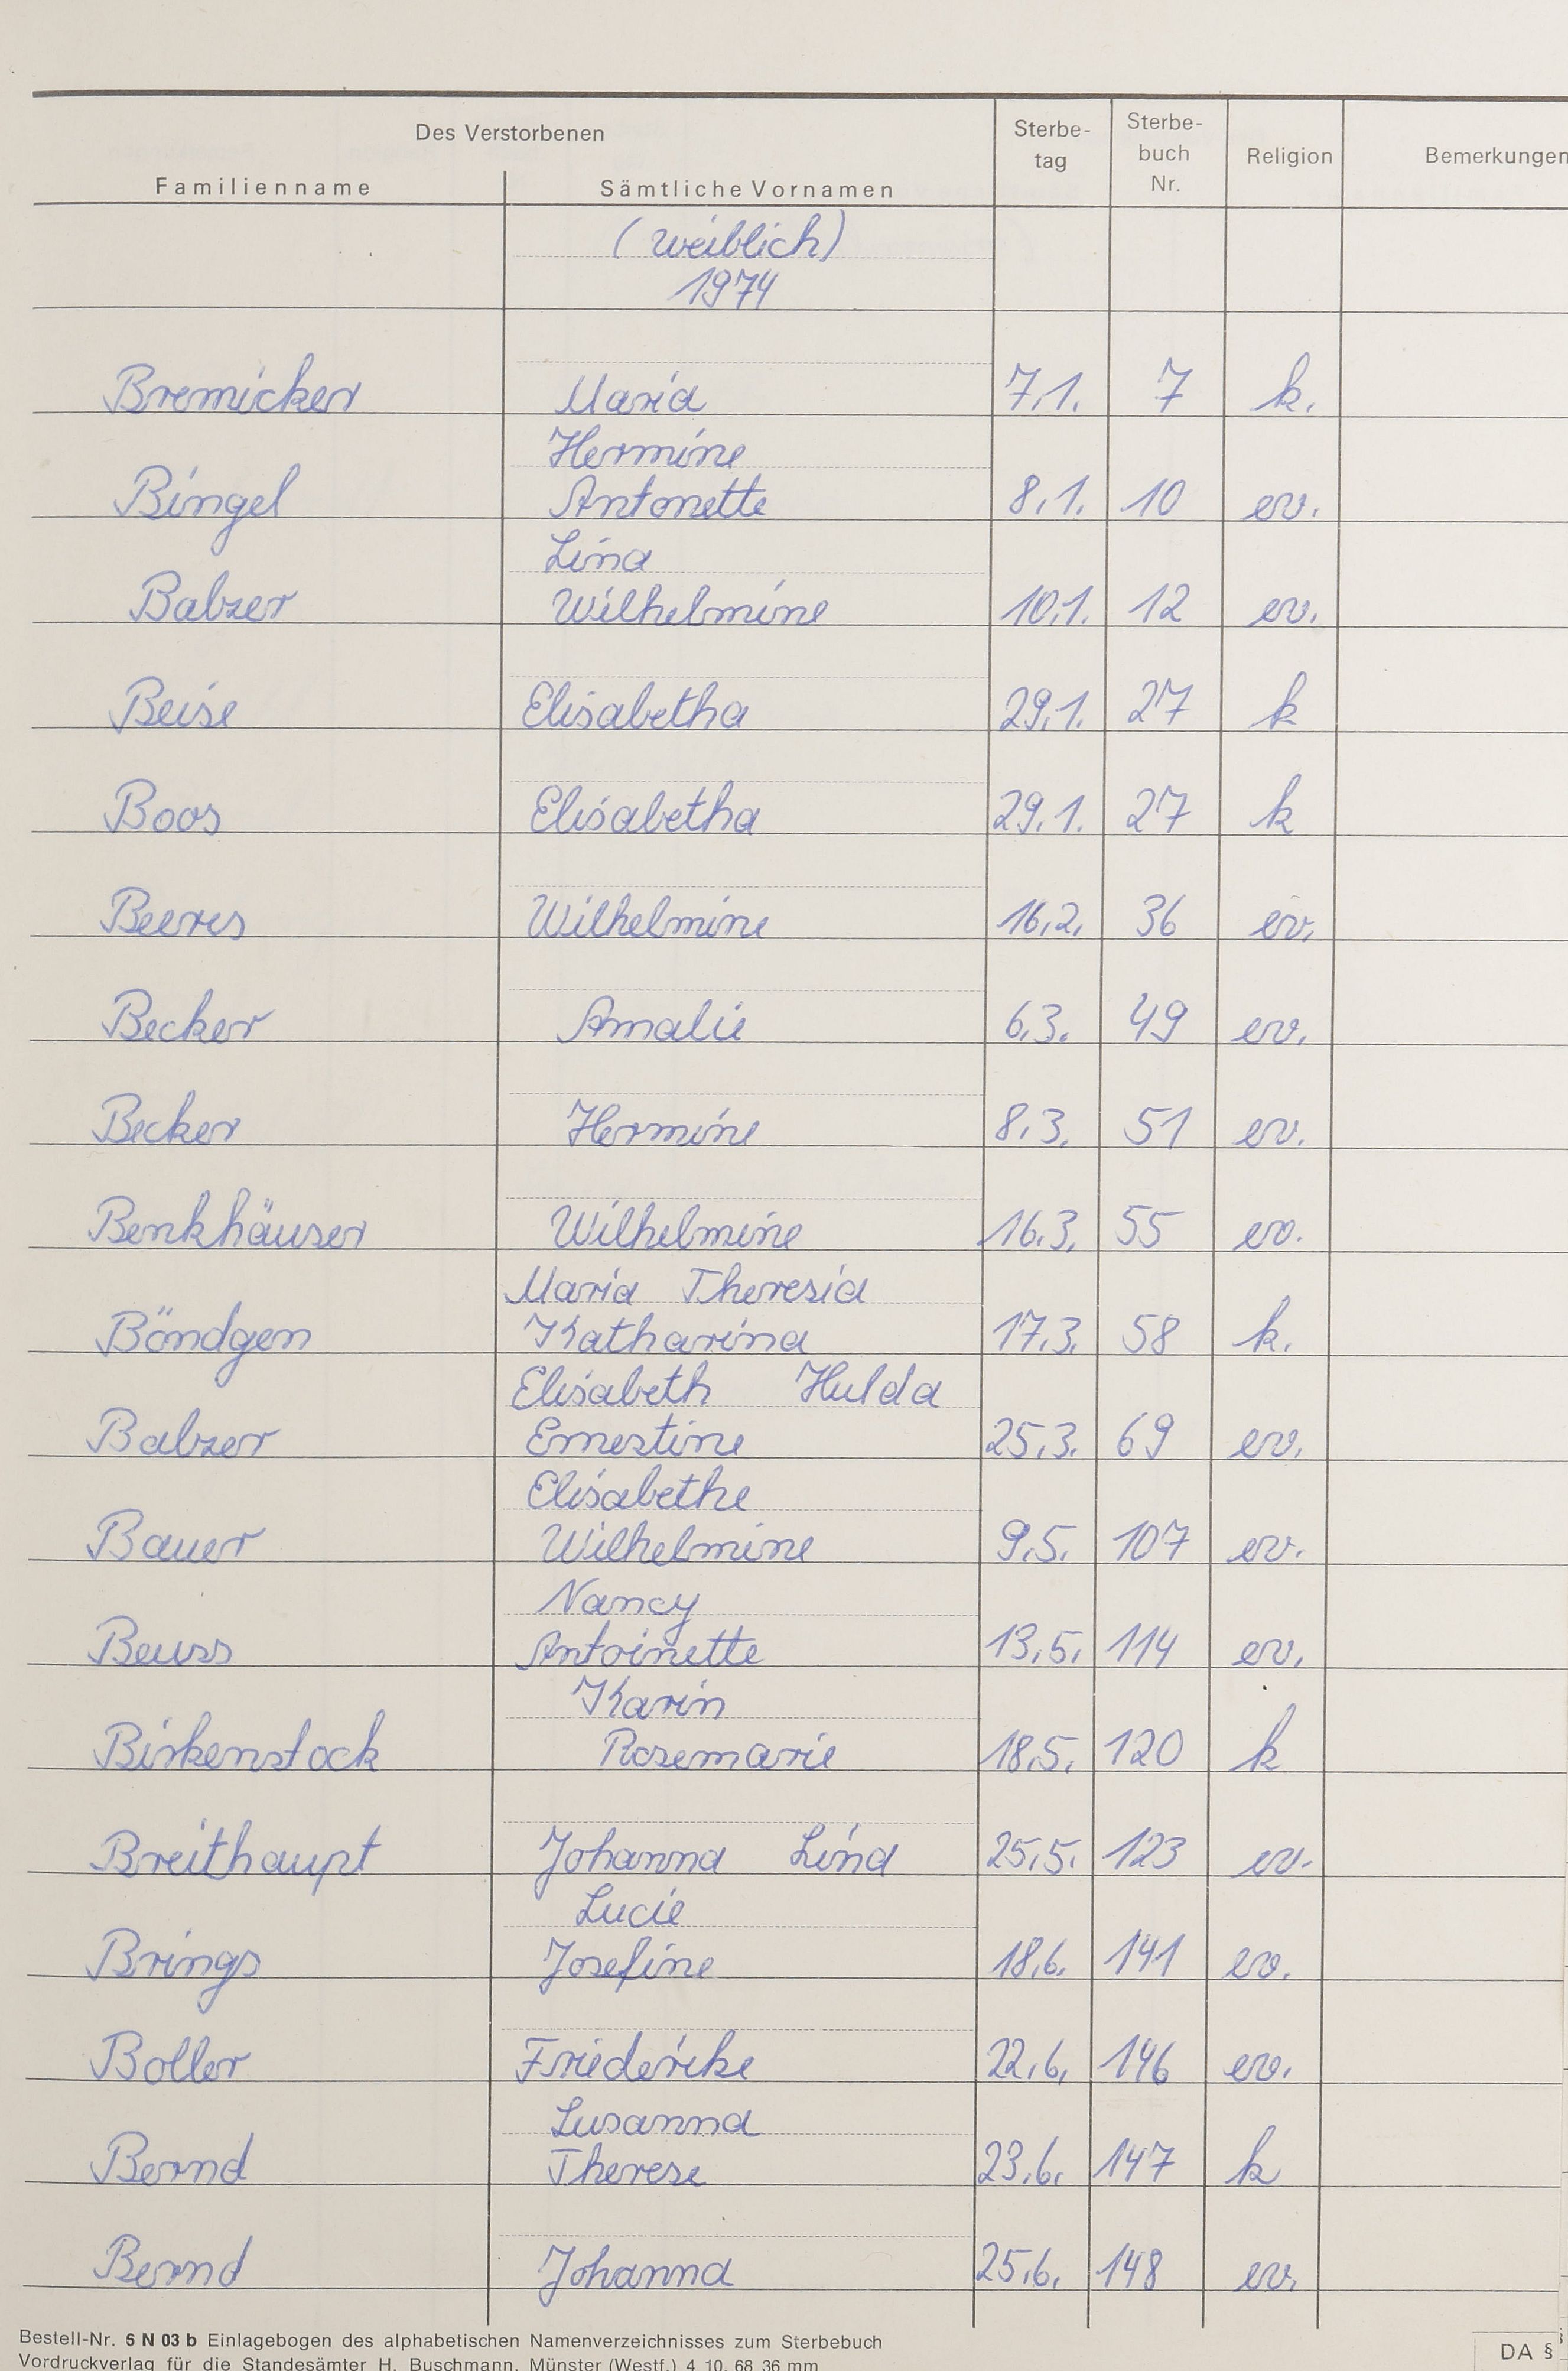 Des Verstorbenen
Familienname Sämtliche Vornamen Sterbe-
tag Sterbe-
buch
Nr. Religion Bemerkungen
(weiblich)
1974
Bremicker Maria 7.1. 7 k.
Hermine
Bingel Antonette 8.1. 10 ev.
Lina
Balzer Wilhelmine 10.1. 12 ev.
Beise Elisabetha 29.1. 27 k
Boos Elisabetha 29.1. 27 k
Beeres Wilhelmine 16.2. 36 ev.
Becker Amalie 6.3. 49 ev.
Becker Hermine 8.3. 51 ev.
Benkhäuser Wilhelmine 16.3. 55 ev.
Maria Theresia
Böndgen Katharina 17.3. 58 k.
Elisabeth Hulda
Balzer Ernestine 25.3. 69 ev.
Elisabethe
Bauer Wilhelmine 9.5. 107 ev.
Nancy
Beuss Antoinette 13.5. 114 ev.
Karin
Birkenstock Rosemarie 18.5. 120 k
Breithaupt Johanna Lina 25.5. 123 ev.
Lucie
Brings Josefine 18.6. 141 ev.
Boller Friederike 22.6. 146 ev.
Susanna
Bernd Therese 23.6. 147 k
Bernd Johanna 25.6. 148 ev.
Bestell-Nr. 6 N 03 b Einlagebogen des alphabetischen Namenverzeichnisses zum Sterbebuch
Vordruckverlag für die Standesämter H. Buschmann, Münster (Westf.) 4 10. 68 36 mm
DA §